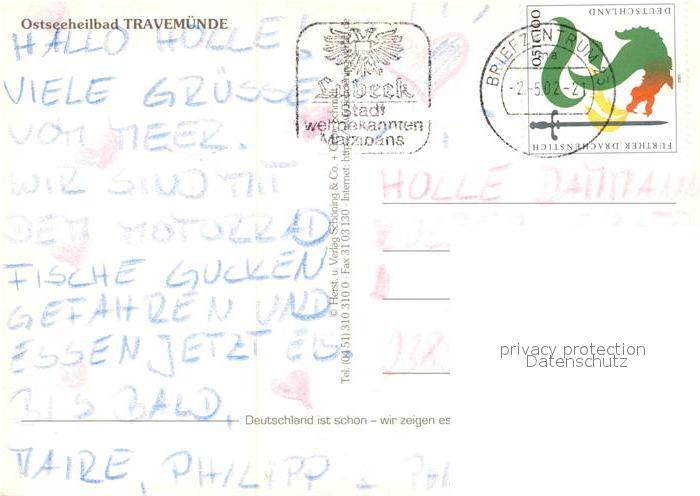 Ostseeheilbad TRAVEMÜNDE
HALLO HOLLE!
VIELE GRÜSSE
VOM MEER.
WIR SIND MIT
DEM MOTORRAD
FISCHE GUCKEN
GEFAHREN UND
ESSEN JETZT EIS.
BIS BALD,
MAIRE, PHILIPP
Lübeck
Stadt
weltbekannten
Marzipans
BRIEFZENTRUM 23
-2.-5.02-21
0,51€ 100
DEUTSCHLAND
FURTHER DRACHENSTICH
© Herst. u. Verlag Schöning & Co. +
Tel. (04 51) 310 310 0 · Fax 31 03 130 · Internet:
HOLLE DAMMANN
privacy protection
Datenschutz
Deutschland ist schön – wir zeigen es